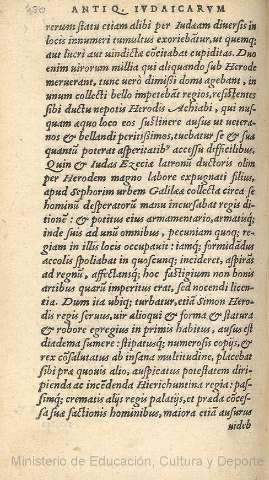 450
ANTIQ. IVDAICARVM
rerum statu etiam alibi per Iudæam diuersis in
locis innumeri tumultus exoriebātur, ut quemq;
aut lucri aut uindictæ cōcitabat cupiditas. Duo
enim uirorum millia qui aliquando sub Herode
meruerant, tunc uerò dimissi domi agebant, in
unum collecti bello impetebāt regios, resistentes
sibi ductu nepotis Herodis Achiabi, qui nus-
quam æquo loco eos sustinere ausus ut uetera-
nos & bellandi peritissimos, tuebatur se & sua
quantū poterat asperitatib⁹ accessu difficilibus.
Quin & Iudas Ezeciæ latronū ductoris olim
per Herodem magno labore expugnati filius,
apud Sephorim urbem Galilææ collecta circa se
hominū desperatorū manu incursabat regis di-
tionē: & potitus eius armamentario, armatisq;
inde suis ad unū omnibus, pecuniam quoq; re-
giam in illis locis occupauit: iamq; formidādus
accolis spoliabat in quoscunq; incideret, aspirās
ad regnū, affectansq; hoc fastigium non bonis
artibus quarū imperitus erat, sed nocendi licen-
tia. Dum ita ubiq; turbatur, etiā Simon Hero-
dis regis seruus, uir alioqui & forma & statura
& robore egregius in primis habitus, ausus est
diadema sumere: stipatusq; numerosis copijs, &
rex cōsalutatus ab insana multitudine, placebat
sibi præ quouis alio, auspicatus potestatem diri-
pienda ac incēdenda Hierichuntina regia: pas-
simq; crematis alijs regijs palatijs, et præda cōces-
sa suæ factionis hominibus, maiora etiā ausurus
uideb
Ministerio de Educación, Cultura y Deporte